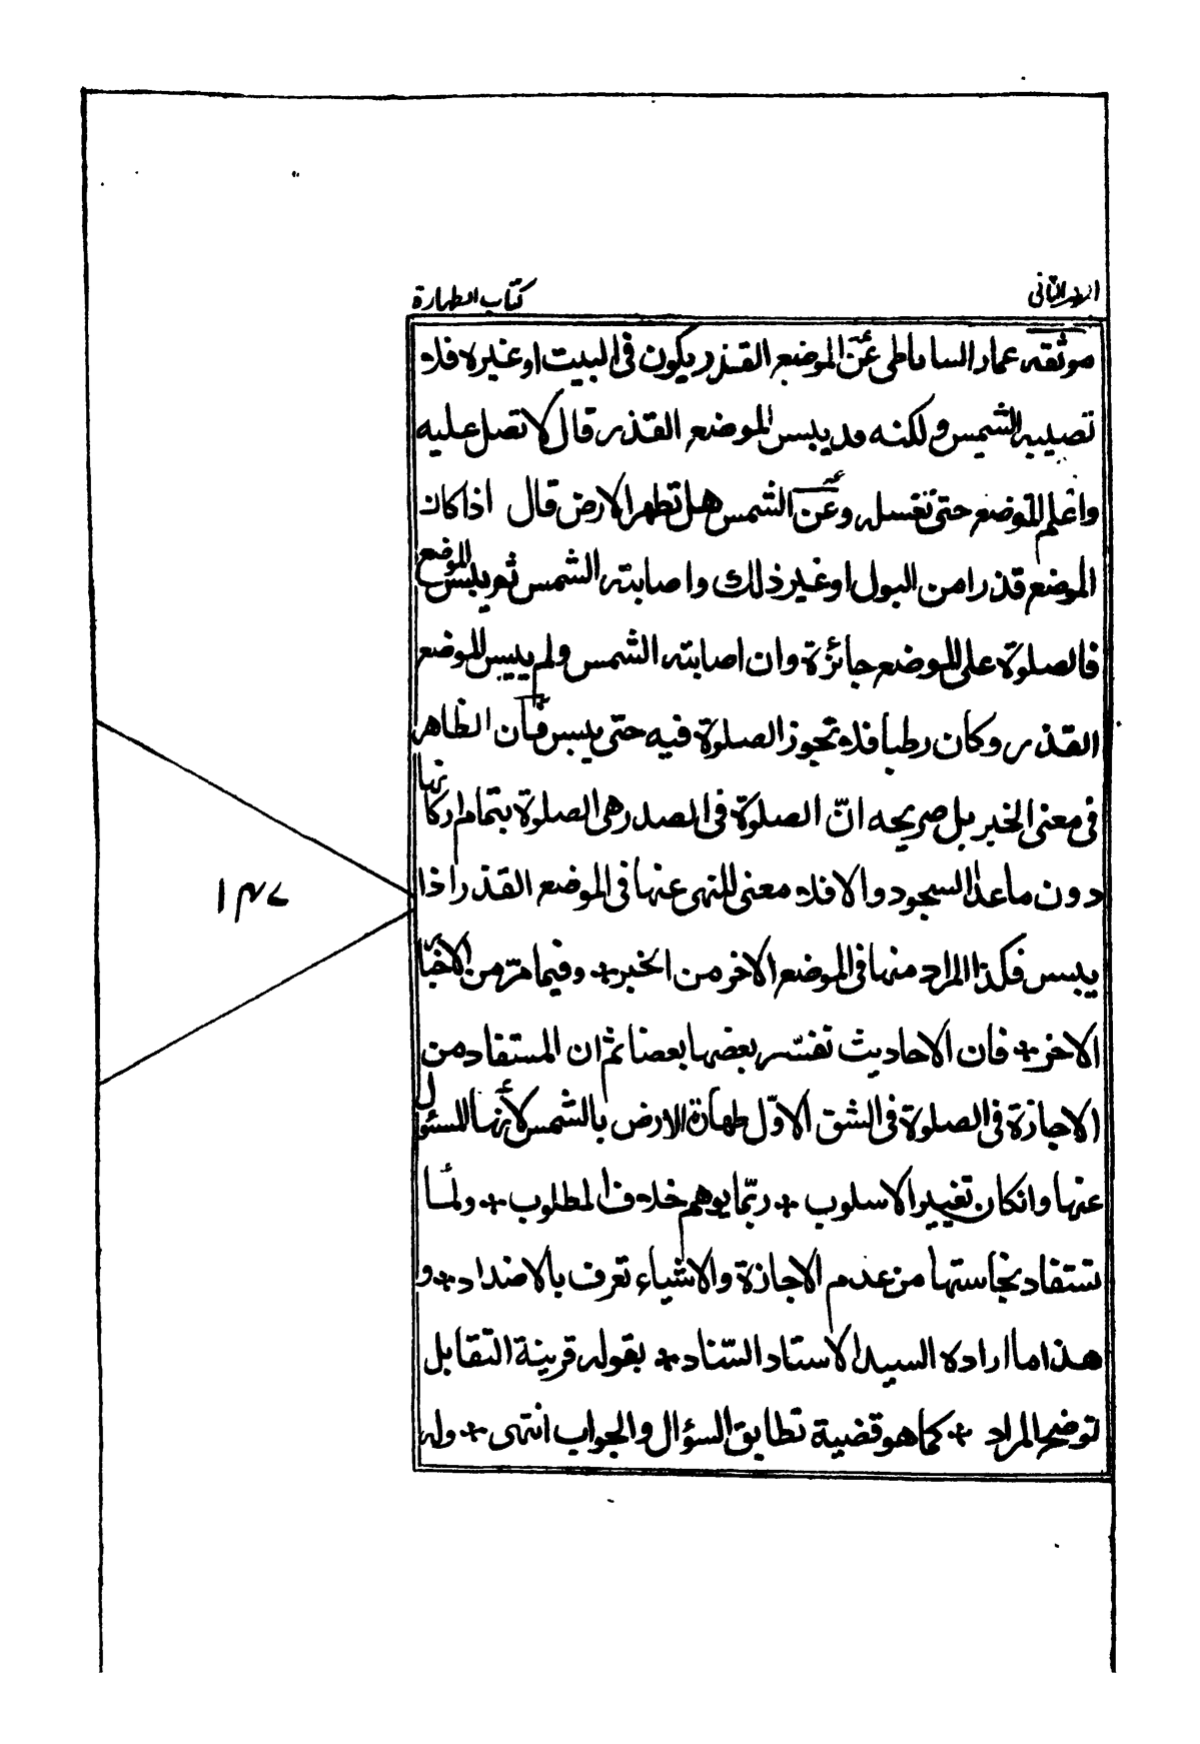 كتاب الطهارة
موثقة عمار الساباطي عن الموضع القذر يكون في البيت او غيره فلا
تصيبه الشمس ولكنه قد يبس الموضع القذر قال لا تصل عليه
واعلم الموضع حتى تغسله وعن الشمس هل تطهر الارض قال اذا كان
الموضع قذرا من البول او غير ذلك واصابته الشمس ثم يبس الموضع
فالصلوة على الموضع جائزة وان اصابته الشمس ولم ييبس الموضع
القذر وكان رطبا فلا تجوز الصلوة فيه حتى ييبس فان الظاهر
في معنى الخبر بل صريحه انّ الصلوة في الصدر هي الصلوة بتمام اركانها
دون ما عدا السجود والا فلا معنى للنهى عنها في الموضع القذر اذا
يبس فكذا المراد منها في الموضع الاخر من الخبر + وفيما مرّ من الاخبار
الاخر + فان الاحاديث تفسّر بعضها بعضا ثم ان المستفاد من
الاجازة في الصلوة في الشق الاوّل طهارة الارض بالشمس لأنها المسئول
عنها وانكان تغيير الاسلوب + ربّما يوهم خلاف المطلوب + ولما
تستفاد نجاستها من عدم الاجازة والاشياء تعرف بالاضداد + و
هذا ما اراده السيد الاستاد السّناد + بقوله قرينة التقابل
توضح المراد + كما هو قضية تطابق السؤال والجواب انتهى + وله
١٤٧